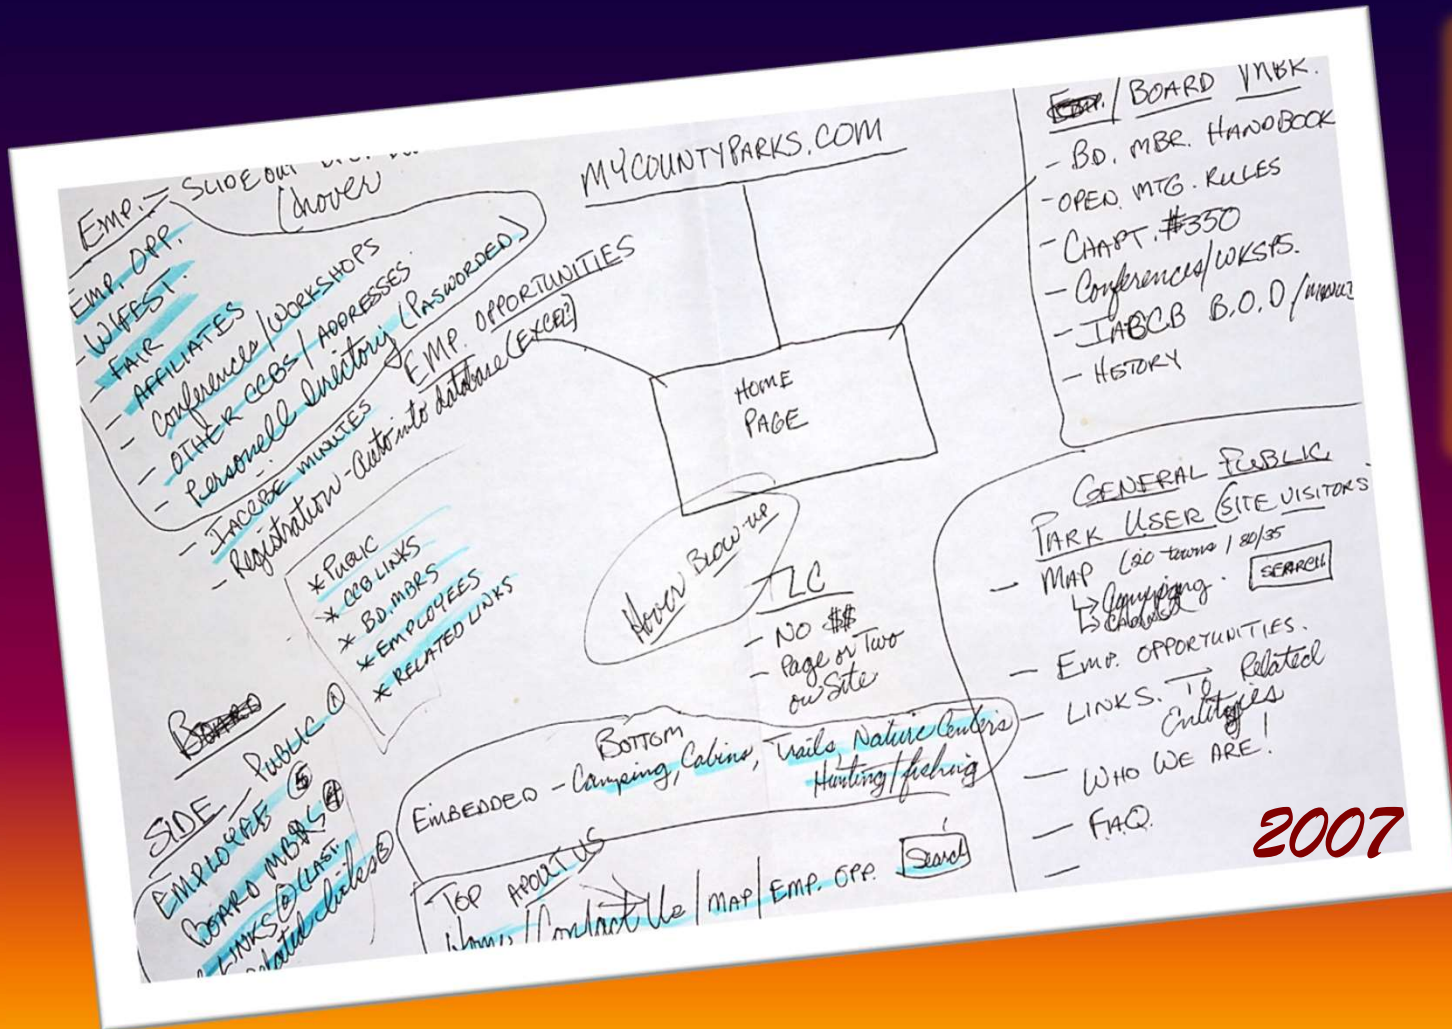 MYCOUNTYPARKS.COM
EMP. = SLIDE OUT
(hover
EMP. OPP.
- W/FEST
- FAIR
- AFFILIATES
- Conferences/WORKSHOPS
- OTHER CCBS/ADDRESSES.
- Personell Directory (PASWORDED)
EMP. OPPORTUNITIES
- IACCBE MINUTES
- Registration - Auto into database (EXCEL?)
HOME
PAGE
/BOARD MBR.
- BD. MBR. HANDBOOK
- OPEN. MTG. RULES
- CHAPT. #350
- Conferences/WKSPS.
- IABCB B.O.D/
- HISTORY
* PUBLIC
* CCB LINKS
* BD. MBRS
* EMPLOYEES
* RELATED LINKS
Hover BLOW-UP
- NO $$
- Page or Two
on Site
GENERAL PUBLIC
PARK USER (SITE VISITORS
- MAP (20 towns / 80/35
↳ Camping.
↳ CABINS
SEARCH
- EMP. OPPORTUNITIES.
- LINKS. → To Related
Entities
- WHO WE ARE!
- FAQ.
-
BOARD
SIDE - PUBLIC ①
EMPLOYEE ⑤
BOARD MBRS ④
LINKS (LAST
BOTTOM
EMBEDDED - Camping, Cabins, Trails, Nature Centers
Hunting/fishing
TOP ABOUT US
Home/Contact Us/MAP/EMP. OPP. Search
2007